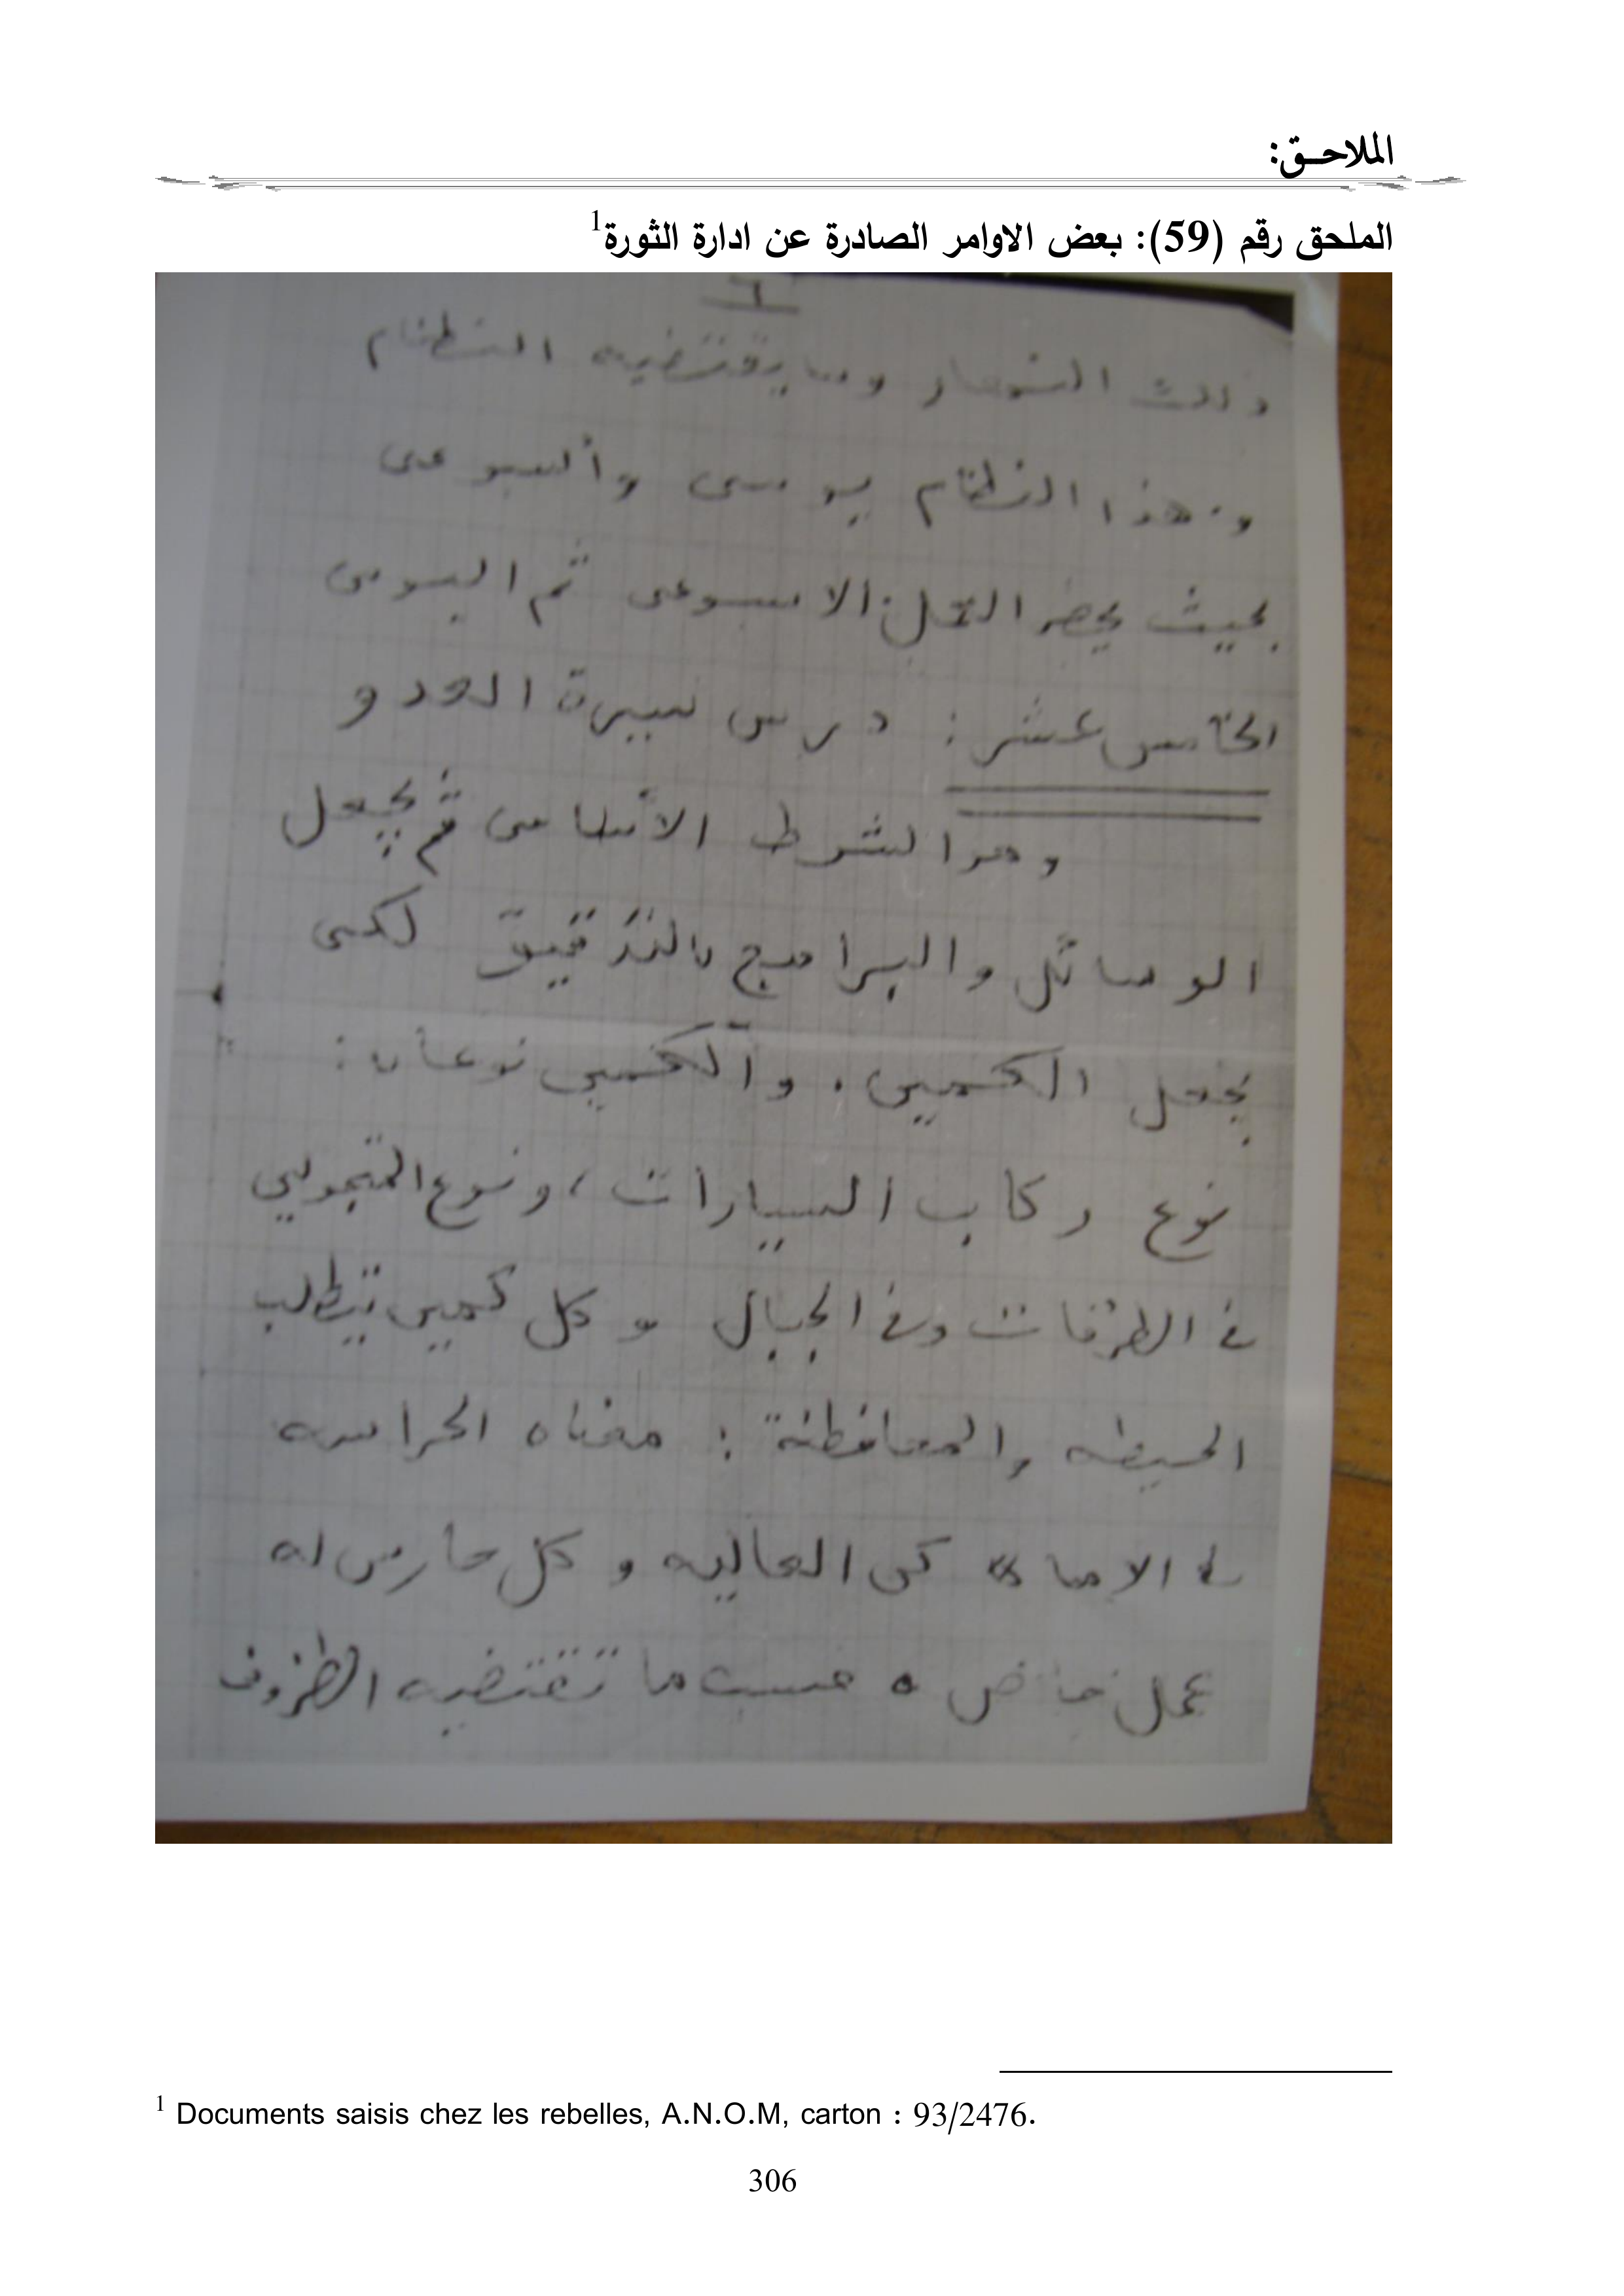 الملاحـق:
الملحق رقم (59): بعض الاوامر الصادرة عن ادارة الثورة1
٦
ذالك الشعار وما يقتضيه النظام
وهذا النظام يومى وأسبوعى
بحيث يحضر الاسبوعى ثم اليومى
الخامس عشر: درس سيرة العدو
وهو الشرط الأساسى ثم يجعل
الوسائل والبرامج بالتدقيق لكى
يجعل الكمين. والكمين نوعان:
نوع ركاب السيارات، ونوع المتجولين
فى الطرقات وفى الجبال وكل كمين يتطلب
الحيطه والمحافظة: معناه الحراسه
فى الاماكن العاليه وكل حارس له
عمل خاص حسب ما تقتضيه الظروف
1 Documents saisis chez les rebelles, A.N.O.M, carton : 93/2476.
306